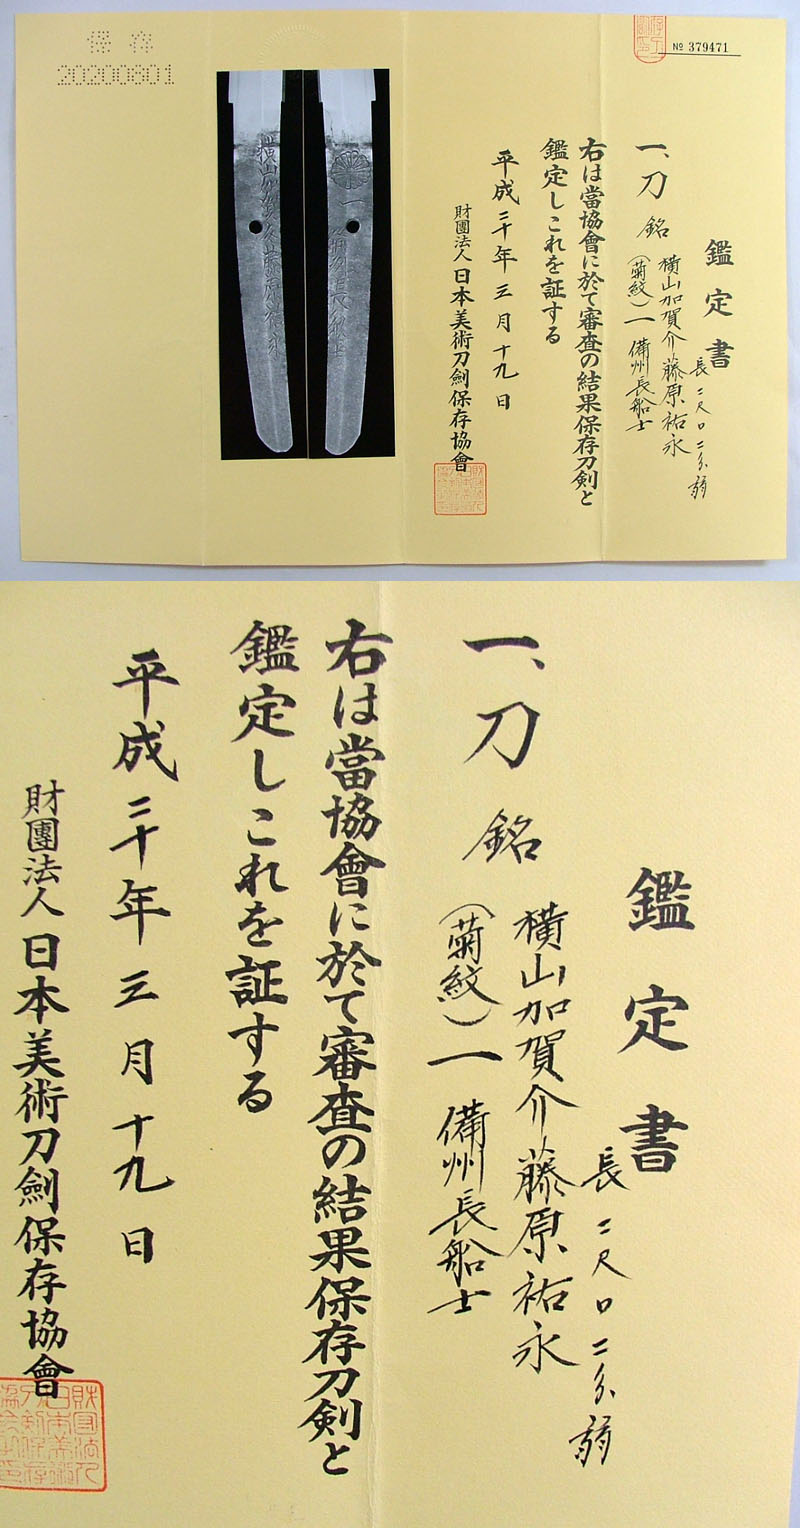 保存
20200801
№ 379471
鑑定書
長二尺口二分弱
一、刀 銘 横山加賀介藤原祐永
（菊紋）一 備州長船士
右は當協會に於て審査の結果保存刀剣と
鑑定しこれを証する
平成二十年三月十九日
財團法人日本美術刀劍保存協會
横山加賀介藤原祐永
一
鑑定書
長二尺口二分弱
一、刀 銘 横山加賀介藤原祐永
（菊紋）一 備州長船士
右は當協會に於て審査の結果保存刀剣と
鑑定しこれを証する
平成二十年三月十九日
財團法人日本美術刀劍保存協會